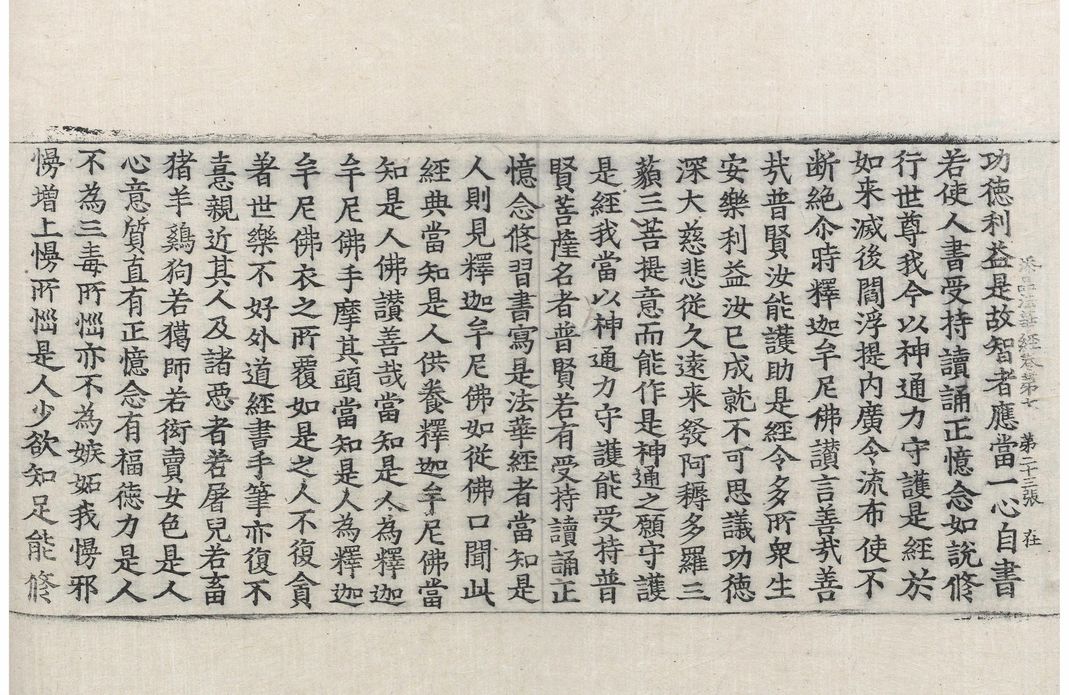 妙法蓮華經卷第七　第二十三張　在
功德利益是故智者應當一心自書
若使人書受持讀誦正憶念如說修
行世尊我今以神通力守護是經於
如来滅後閻浮提内廣令流布使不
断絶尒時釋迦牟尼佛讃言善㢤善
㢤普賢汝能護助是經令多所衆生
安樂利益汝已成就不可思議功德
深大慈悲從久遠来發阿耨多羅三
藐三菩提意而能作是神通之願守護
是經我當以神通力守護能受持普
賢菩薩名者普賢若有受持讀誦正
憶念修習書寫是法華經者當知是
人則見釋迦牟尼佛如從佛口聞此
經典當知是人供養釋迦牟尼佛當
知是人佛讃善哉當知是人為釋迦
牟尼佛手摩其頭當知是人為釋迦
牟尼佛衣之所覆如是之人不復貪
著世樂不好外道經書手筆亦復不
憙親近其人及諸惡者若屠兒若畜
猪羊鷄狗若獦師若衒賣女色是人
心意質直有正憶念有福德力是人
不為三毒所惱亦不為嫉妬我慢邪
慢增上慢所惱是人少欲知足能修